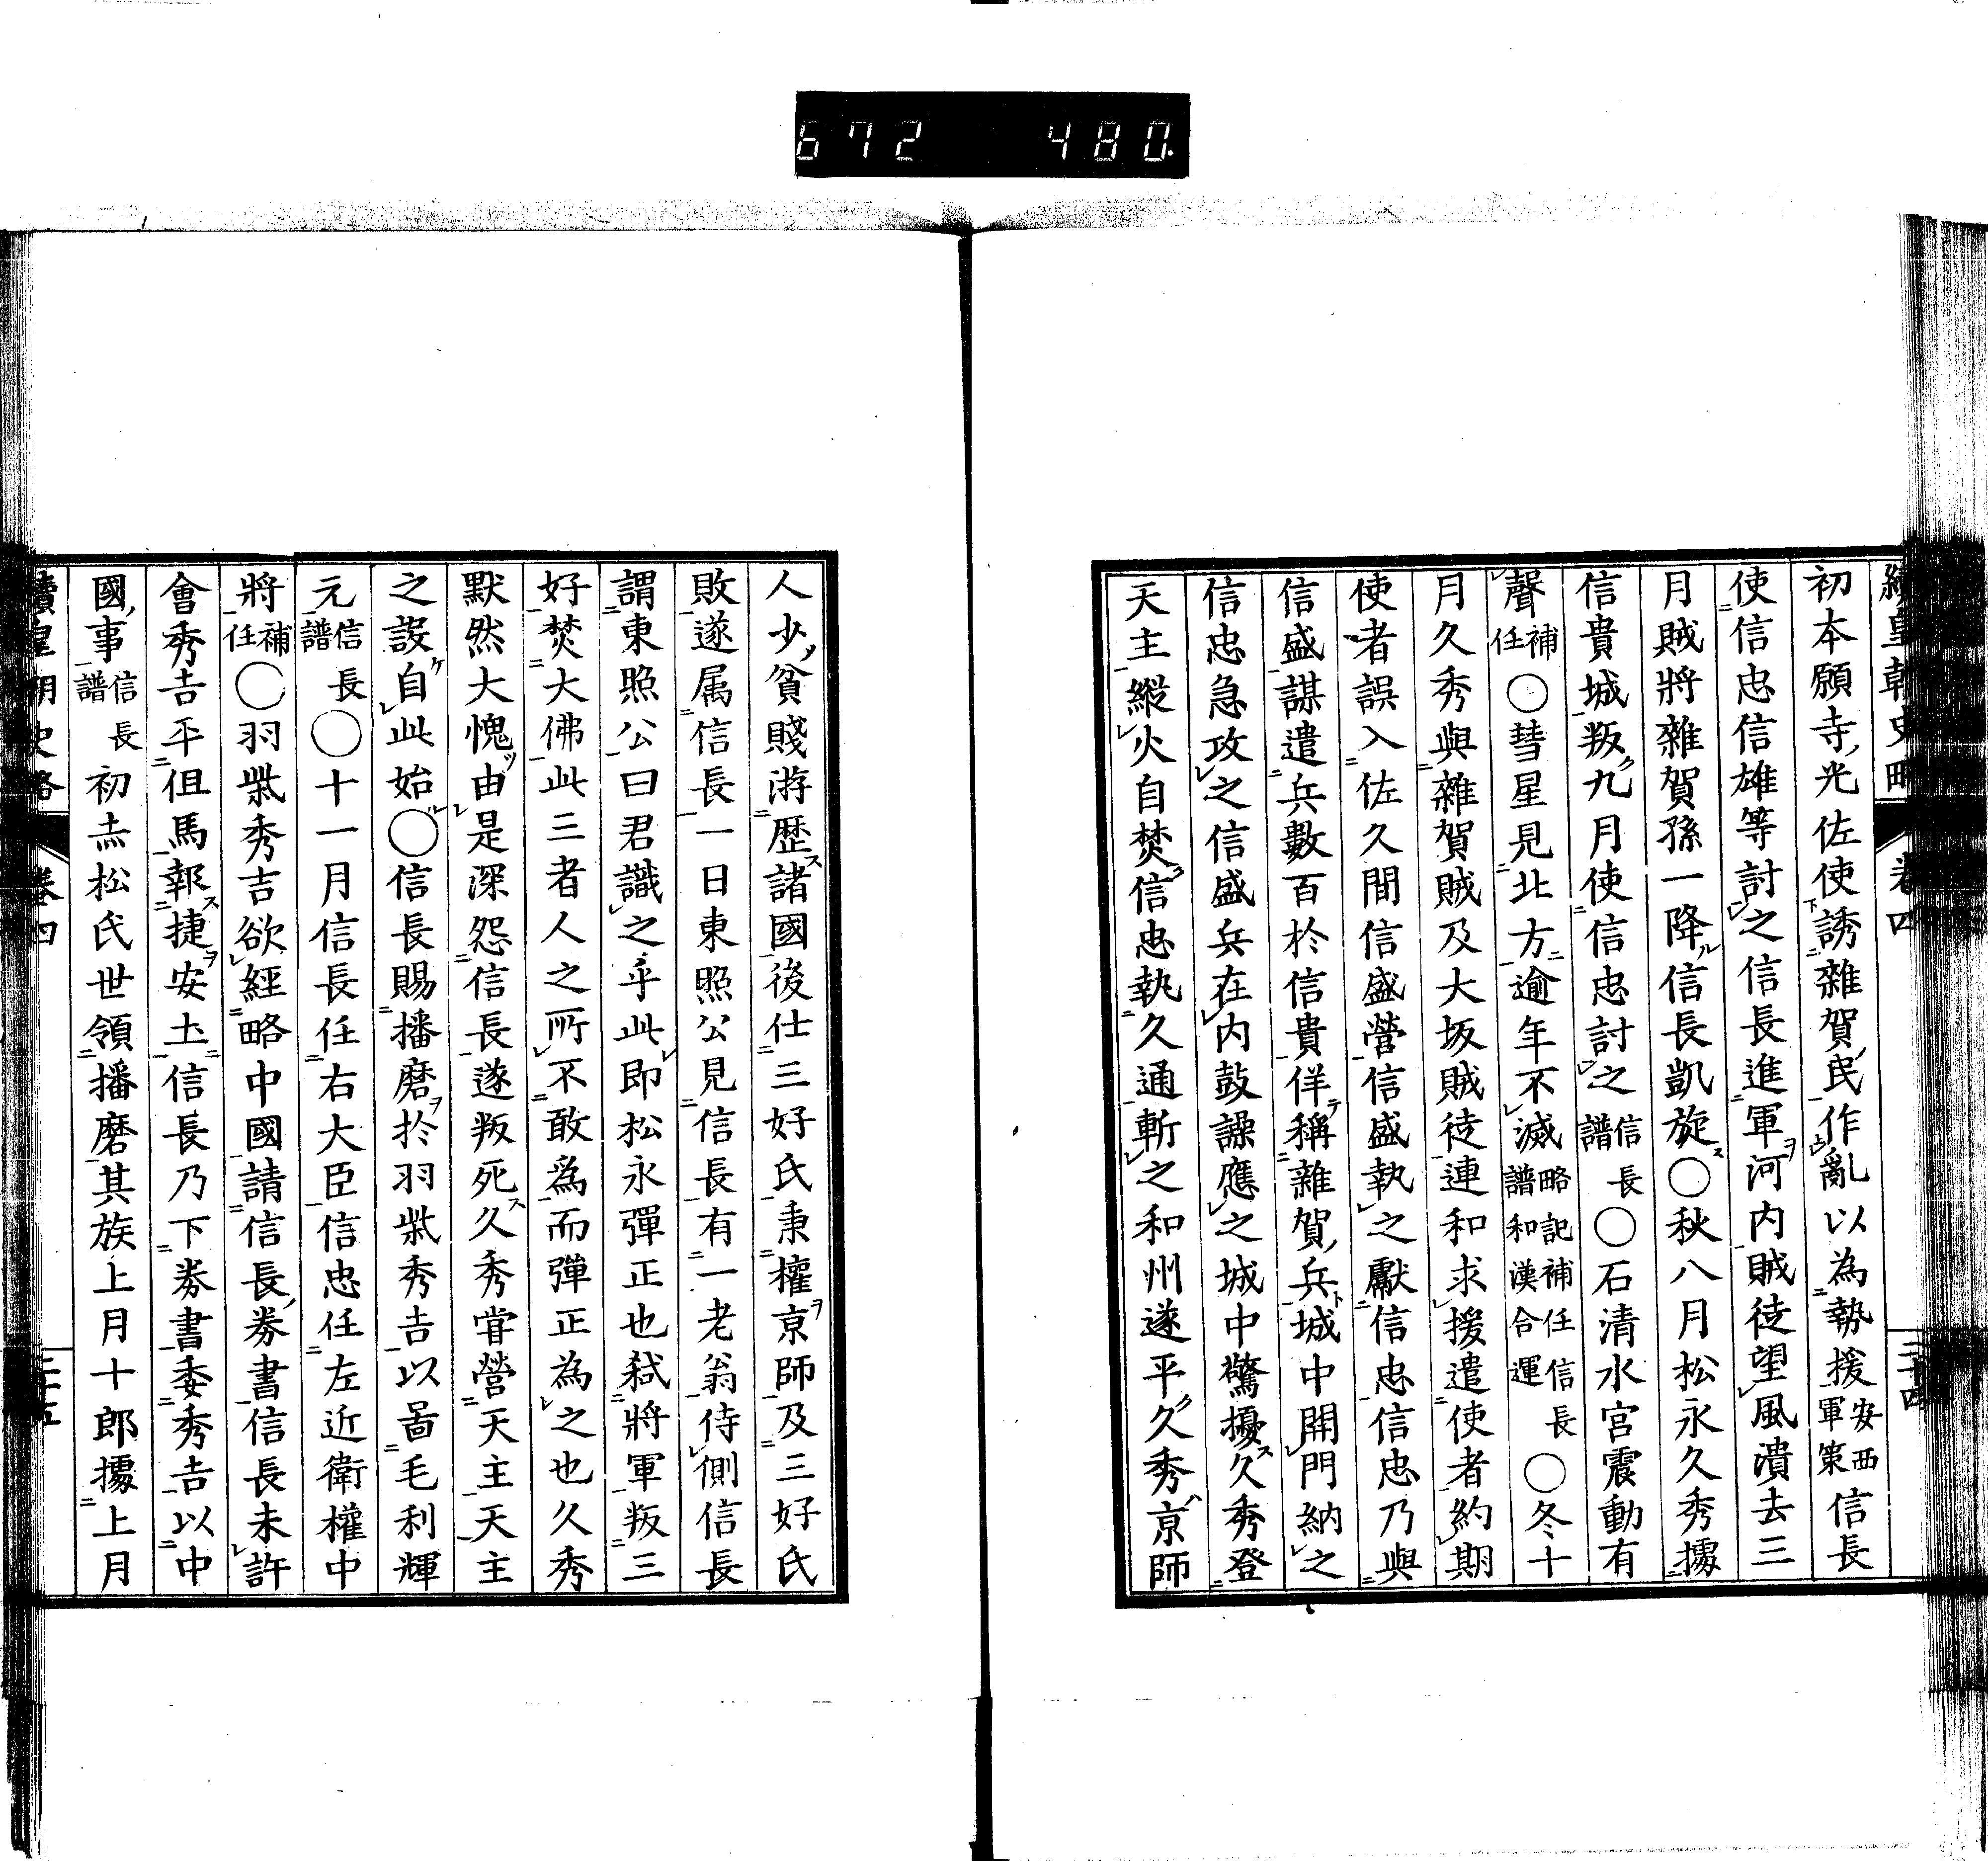 672 480.
續皇朝史略 卷四 二十四
初本願寺光佐使誘雜賀民作亂以為執援安西軍策信長
使信忠信雄等討之信長進軍河内賊徒望風潰去三
月賊將雜賀孫一降信長凱旋○秋八月松永久秀據
信貴城叛九月使信忠討之信長譜○石清水宮震動有
聲補任○彗星見北方逾年不滅略記補任信長譜和漢合運○冬十
月久秀與雜賀賊及大坂賊徒連和求援遣使者約期
使者誤入佐久間信盛營信盛執之獻信忠信忠乃與
信盛謀遣兵數百於信貴佯稱雜賀兵城中開門納之
信忠急攻之信盛兵在内鼓譟應之城中驚擾久秀登
天主縱火自焚信忠執久通斬之和州遂平久秀京師
人少貧賤游歴諸國後仕三好氏秉權京師及三好氏
敗遂属信長一日東照公見信長有一老翁侍側信長
謂東照公曰君識之乎此即松永彈正也弑將軍叛三
好焚大佛此三者人之所不敢爲而彈正為之也久秀
默然大愧由是深怨信長遂叛死久秀甞營天主天主
之設自此始○信長賜播磨於羽柴秀吉以啚毛利輝
元信長譜○十一月信長任右大臣信忠任左近衛權中
將補任○羽柴秀吉欲經略中國請信長劵書信長未許
會秀吉平伹馬報捷安土信長乃下劵書委秀吉以中
國事信長譜初赤松氏世領播磨其族上月十郎據上月
續皇朝史略 卷四 二十五